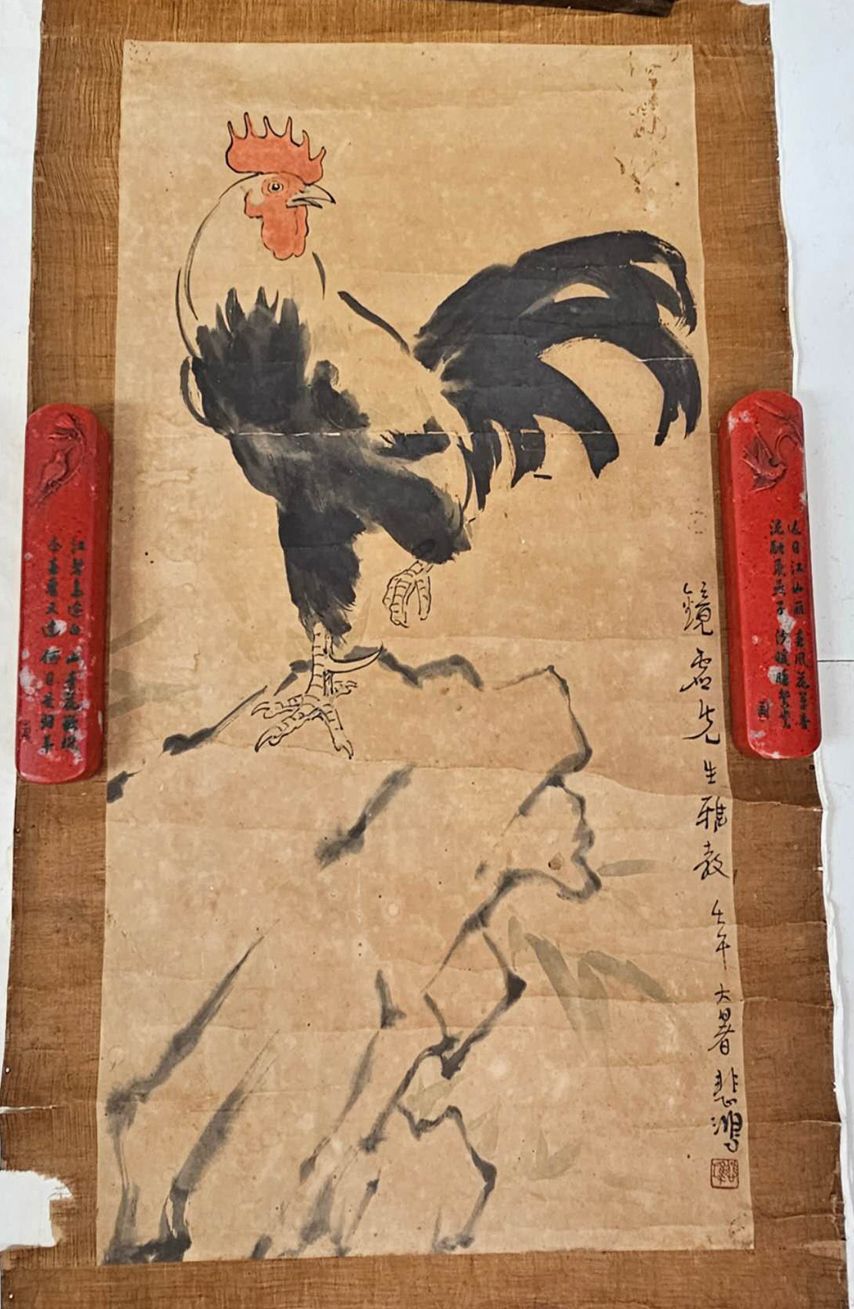 鏡虛先生雅教 壬午大暑 悲鴻
遲日江山麗 春風花草香
泥融飛燕子 沙暖睡鴛鴦
江碧鳥逾白 山青花欲燃
今春看又過 何日是歸年